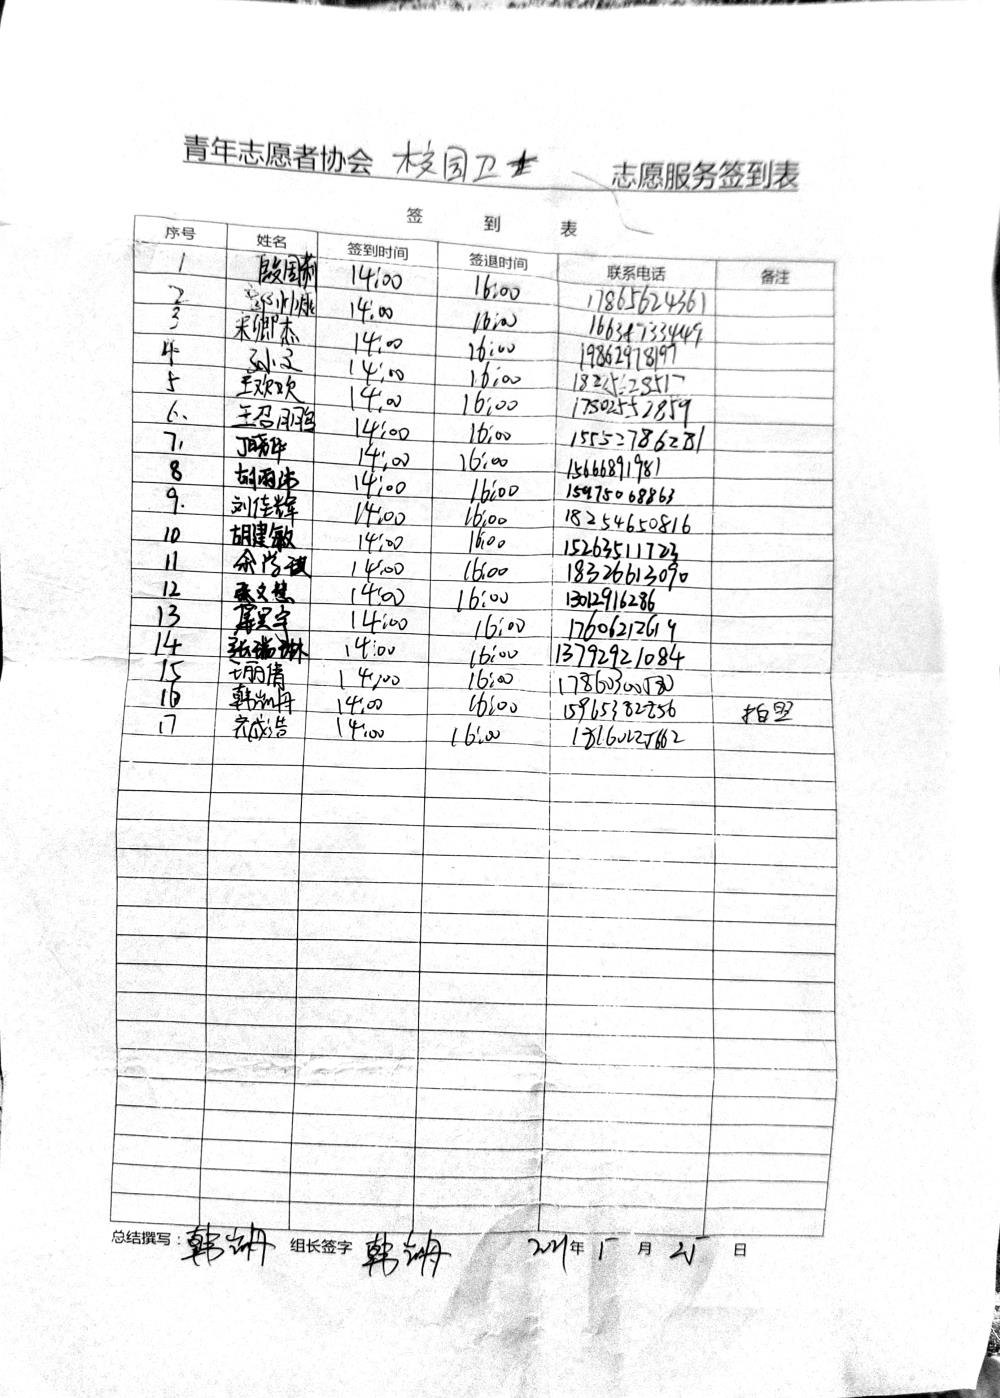 青年志愿者协会 校园卫士 志愿服务签到表
签 到 表
序号 姓名 签到时间 签退时间 联系电话 备注
1 殷国莉 14:00 16:00 17865624361
2 14:00 16:00
3 宋卿杰 14:00 16:00 19862978197
4 孙文 14:00 16:00
5 王欢欢 14:00 16:00 17502552859
6. 王召朋鸟 14:00 16:00 15552786281
7. 丁晓华 14:00 16:00 15666891981
8 胡雨沛 14:00 16:00 15975068863
9. 刘佳辉 14:00 16:00 18254650816
10 胡建敏 14:00 16:00 15263511723
11 余学琪 14:00 16:00 18326613090
12 张文慧 14:00 16:00 13012916286
13 14:00 16:00 17606212619
14 张瑞琳 14:00 16:00 13792921084
15 王丽倩 14:00 16:00 17860300580
16 韩凯丹 14:00 16:00 15965382856 拍照
17 亓成浩 14:00 16:00
总结撰写: 韩凯丹 组长签字 韩凯丹 2021年 5 月 25 日